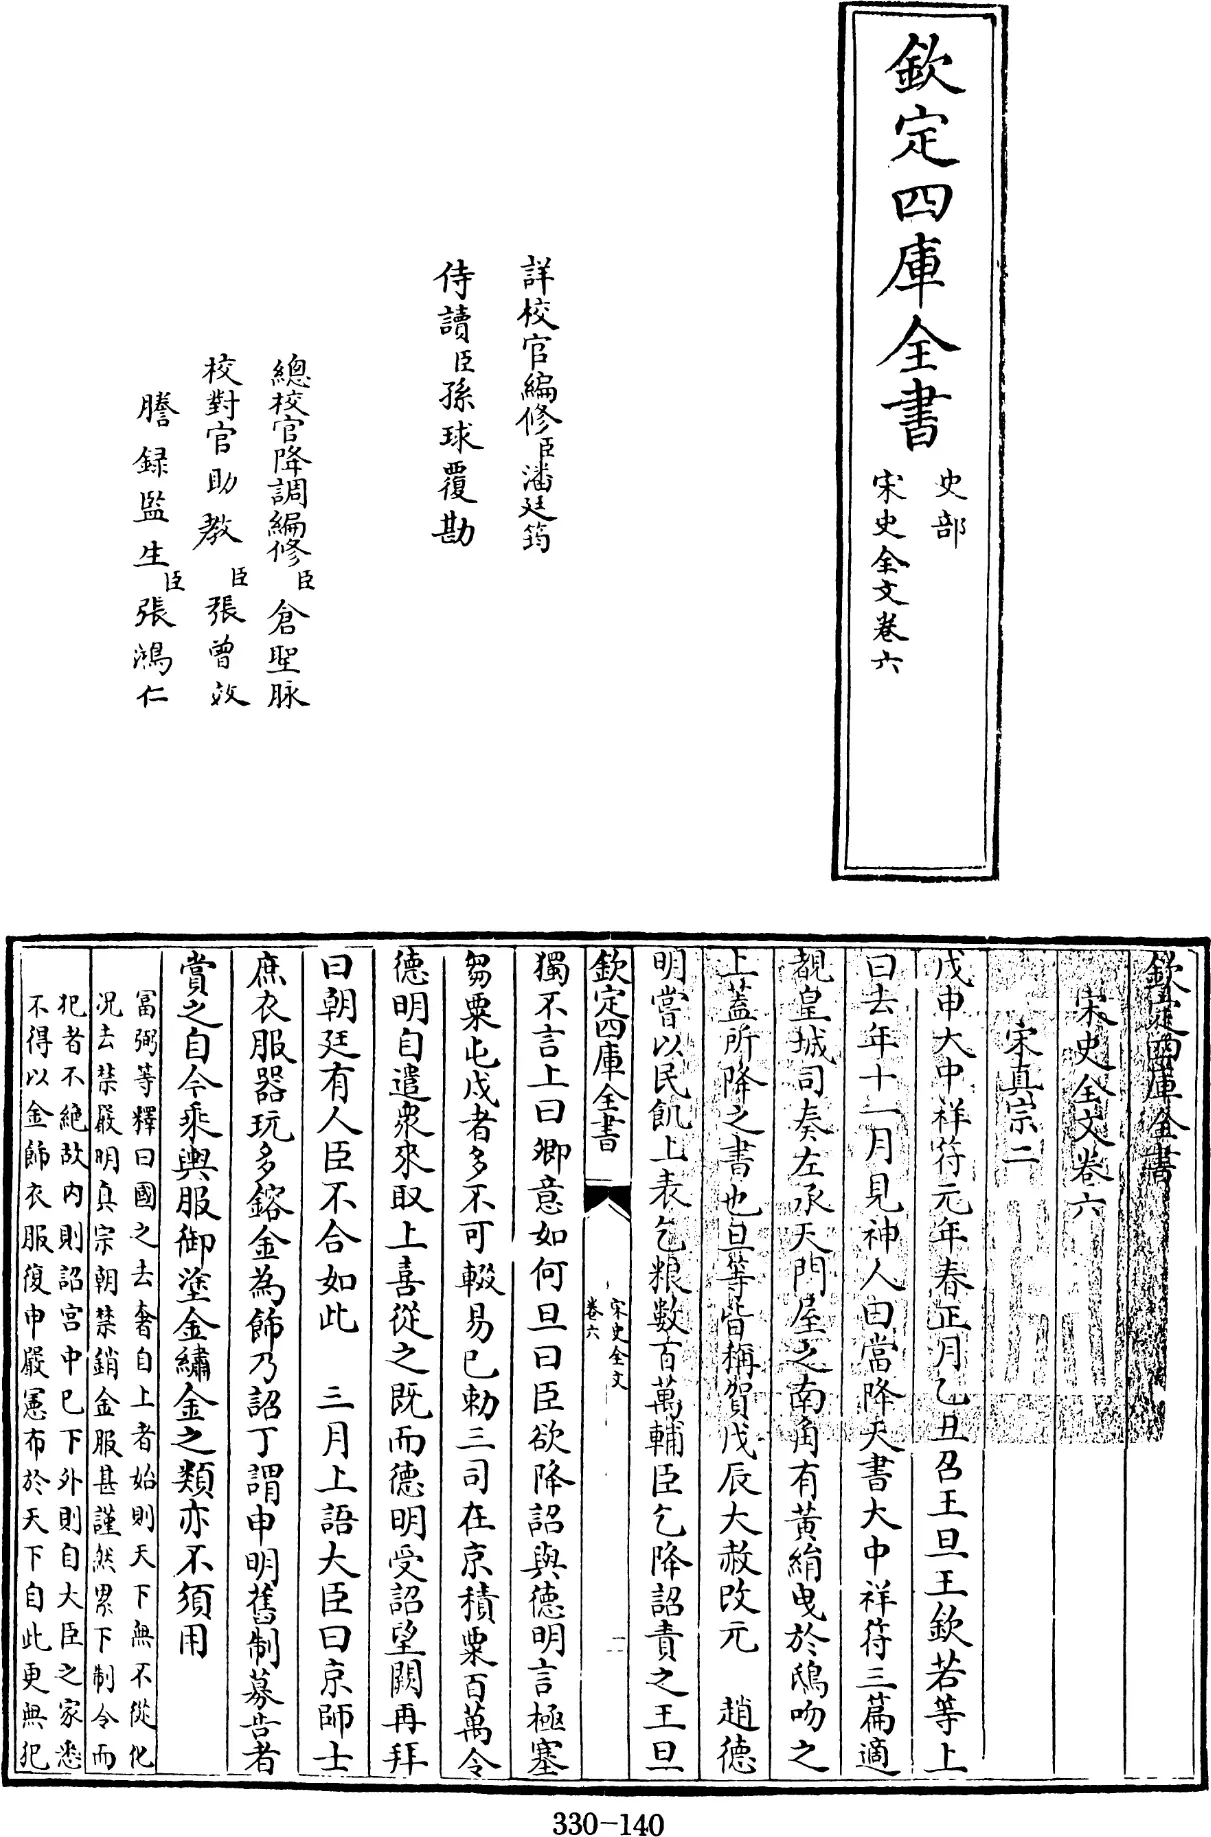 欽定四庫全書
史部
宋史全文卷六
詳校官編修臣潘廷筠
侍讀臣孫球覆勘
總校官降調編修臣倉聖脉
校對官助教臣張曾效
謄録監生臣張鴻仁
欽定四庫全書
宋史全文卷六
宋真宗二
戊申大中祥符元年春正月乙丑召王旦王欽若等上
曰去年十一月見神人曰當降天書大中祥符三篇適
覩皇城司奏左承天門屋之南角有黃絹曵於鴟吻之
上蓋所降之書也旦等皆稱賀戊辰大赦改元 趙德
明嘗以民飢上表乞粮數百萬輔臣乞降詔責之王旦
欽定四庫全書
宋史全文
卷六
一
獨不言上曰卿意如何旦曰臣欲降詔與德明言極塞
芻粟屯戍者多不可輟易已勅三司在京積粟百萬令
德明自遣衆來取上喜從之既而德明受詔望闕再拜
曰朝廷有人臣不合如此 三月上語大臣曰京師士
庶衣服器玩多鎔金為飾乃詔丁謂申明舊制募告者
賞之自今乘輿服御塗金繡金之類亦不須用
富弼等釋曰國之去奢自上者始則天下無不從化
况去禁嚴明真宗朝禁銷金服甚謹然累下制令而
犯者不絶故内則詔宫中已下外則自大臣之家悉
不得以金飾衣服復申嚴憲布於天下自此更無犯
330-140